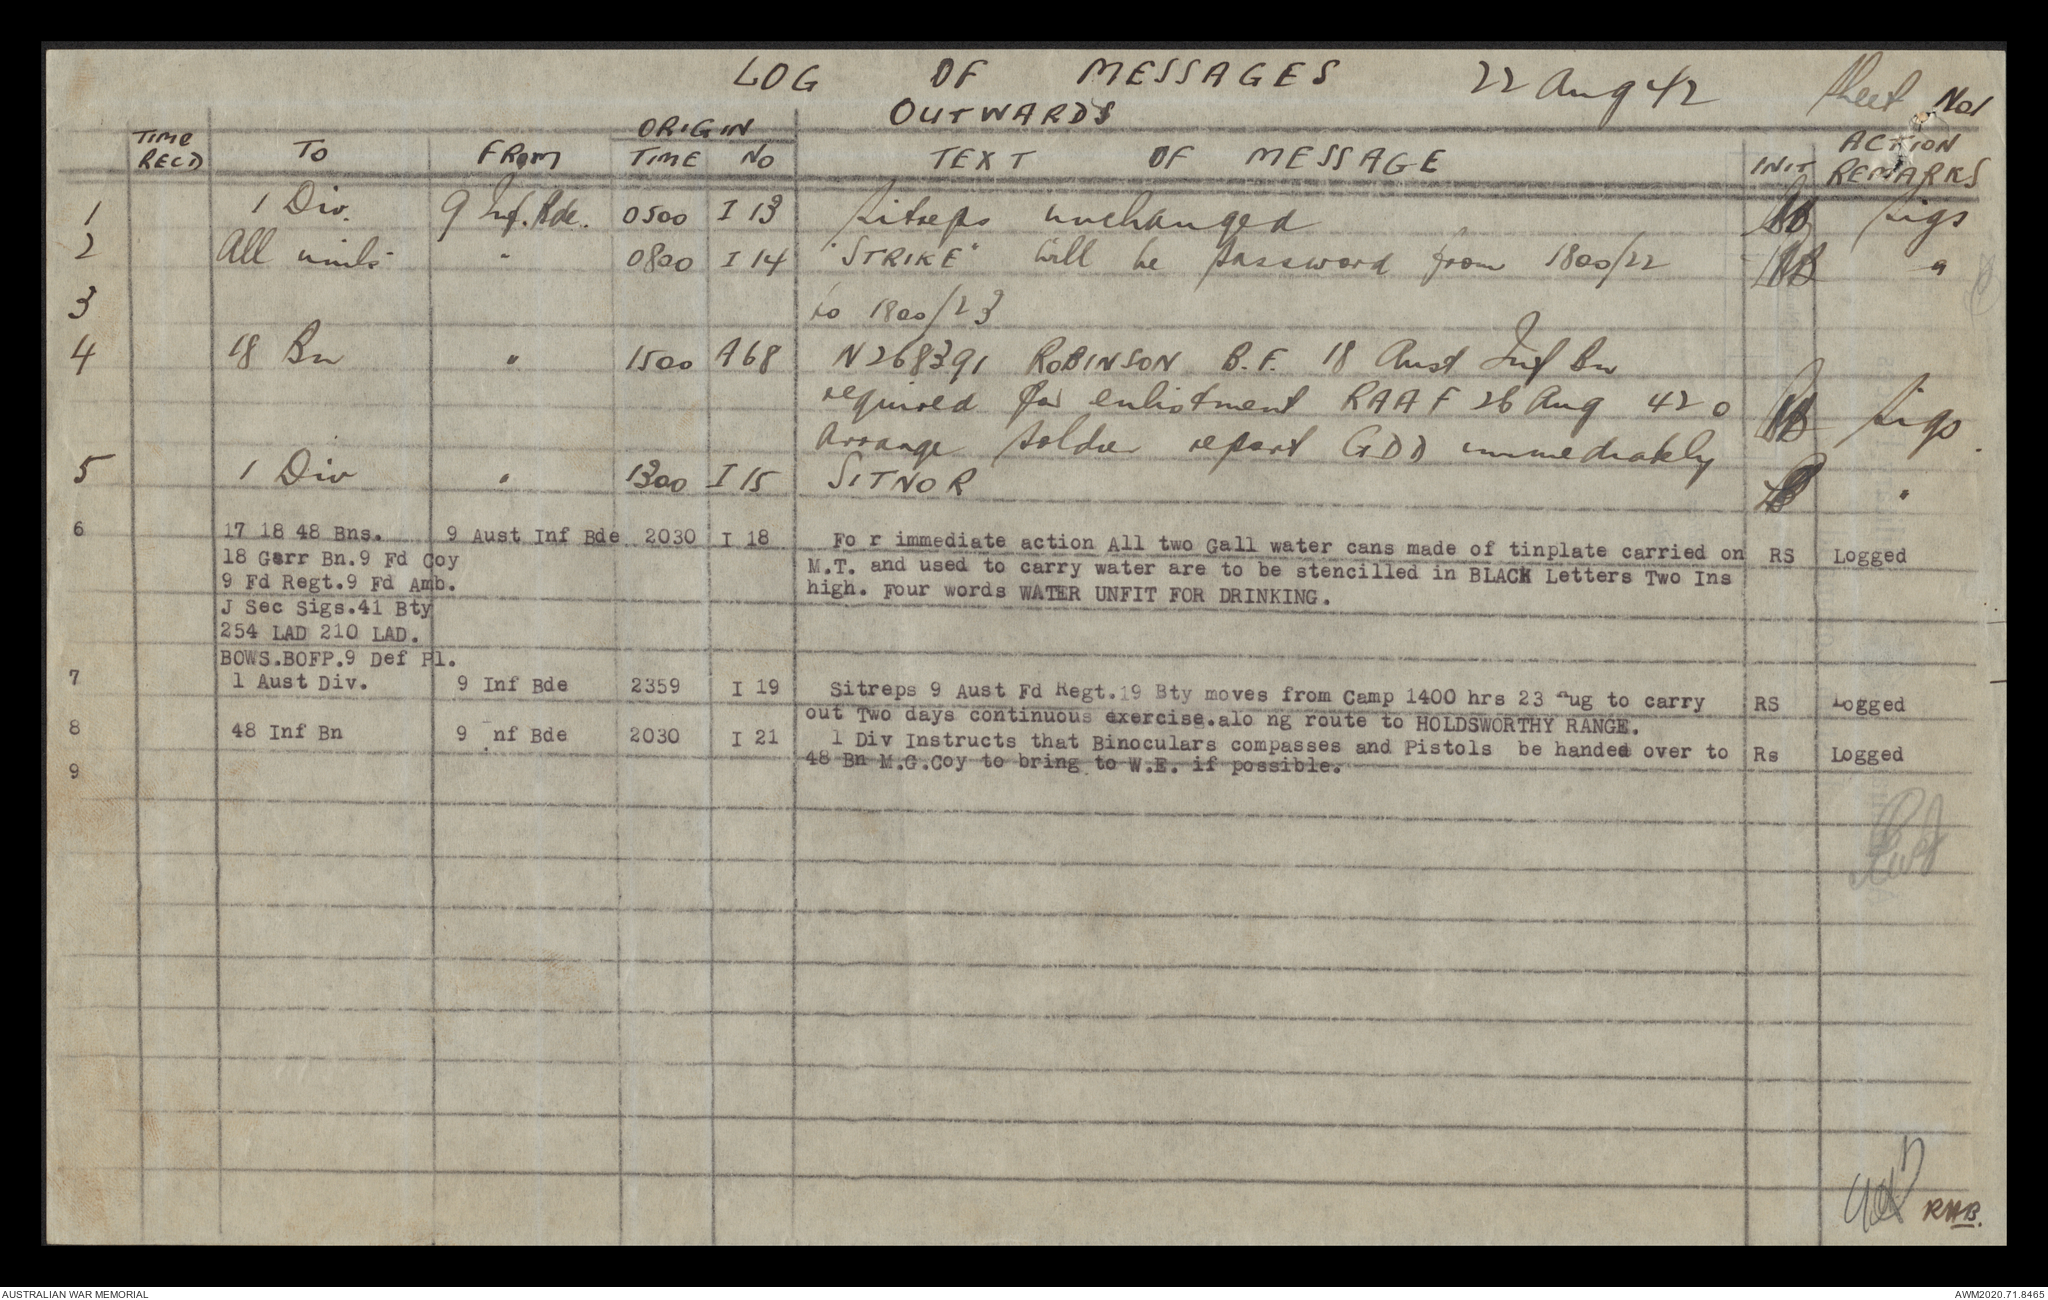 LOG OF MESSAGES 22 Aug 42 Sheet No1
OUTWARDS
TIME RECD TO FROM ORIGIN TIME NO TEXT OF MESSAGE INIT ACTION REMARKS
1 1 Div. 9 Inf. Bde. 0500 I 13 Sitreps unchanged Sigs
2 All units " 0800 I 14 "STRIKE" will be password from 1800/22 "
3 to 1800/23
4 18 Bn " 1500 A68 N268391 ROBINSON B.F. 18 Aust Inf Bn
required for enlistment RAAF 26 Aug 42 o Sigs.
Arrange soldier report GDD immediately
5 1 Div " 1300 I 15 SITNOR "
6 17 18 48 Bns. 9 Aust Inf Bde 2030 I 18 Fo r immediate action All two Gall water cans made of tinplate carried on RS Logged
18 Garr Bn.9 Fd Coy M.T. and used to carry water are to be stencilled in BLACK Letters Two Ins
9 Fd Regt.9 Fd Amb. high. Four words WATER UNFIT FOR DRINKING.
J Sec Sigs.41 Bty
254 LAD 210 LAD.
BOWS.BOFP.9 Def Pl.
7 1 Aust Div. 9 Inf Bde 2359 I 19 Sitreps 9 Aust Fd Regt.19 Bty moves from Camp 1400 hrs 23 Aug to carry RS Logged
out Two days continuous exercise.alo ng route to HOLDSWORTHY RANGE.
8 48 Inf Bn 9 nf Bde 2030 I 21 1 Div Instructs that Binoculars compasses and Pistols be handed over to Rs Logged
9 48 Bn M.G.Coy to bring to W.E. if possible.
RHB.
AUSTRALIAN WAR MEMORIAL AWM2020.71.8465